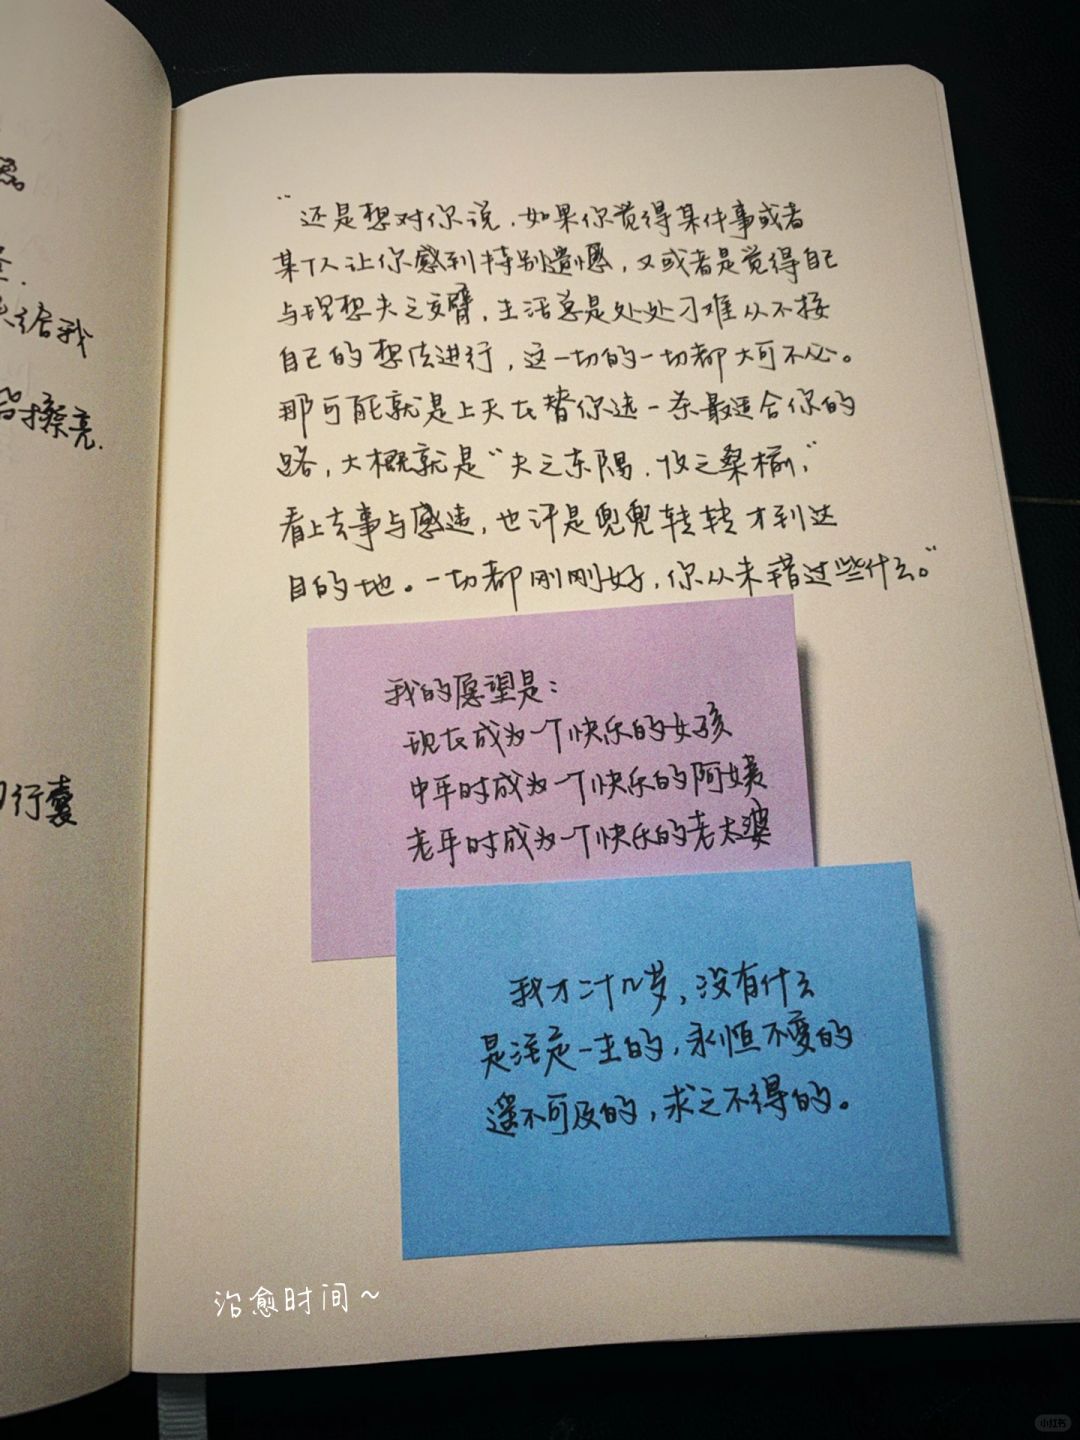 给我
擦亮.
行囊
“还是想对你说，如果你觉得某件事或者
某个人让你感到特别遗憾，又或者是觉得自己
与理想失之交臂，生活总是处处刁难从不按
自己的想法进行，这一切的一切都大可不必。
那可能就是上天在替你选一条最适合你的
路，大概就是“失之东隅，收之桑榆，”
看上去事与愿违，也许是兜兜转转才到达
目的地。一切都刚刚好，你从未错过些什么。”
我的愿望是：
现在成为一个快乐的女孩
中年时成为一个快乐的阿姨
老年时成为一个快乐的老太婆
我才二十几岁，没有什么
是注定一生的，永恒不变的
遥不可及的，求之不得的。
治愈时间~
小红书